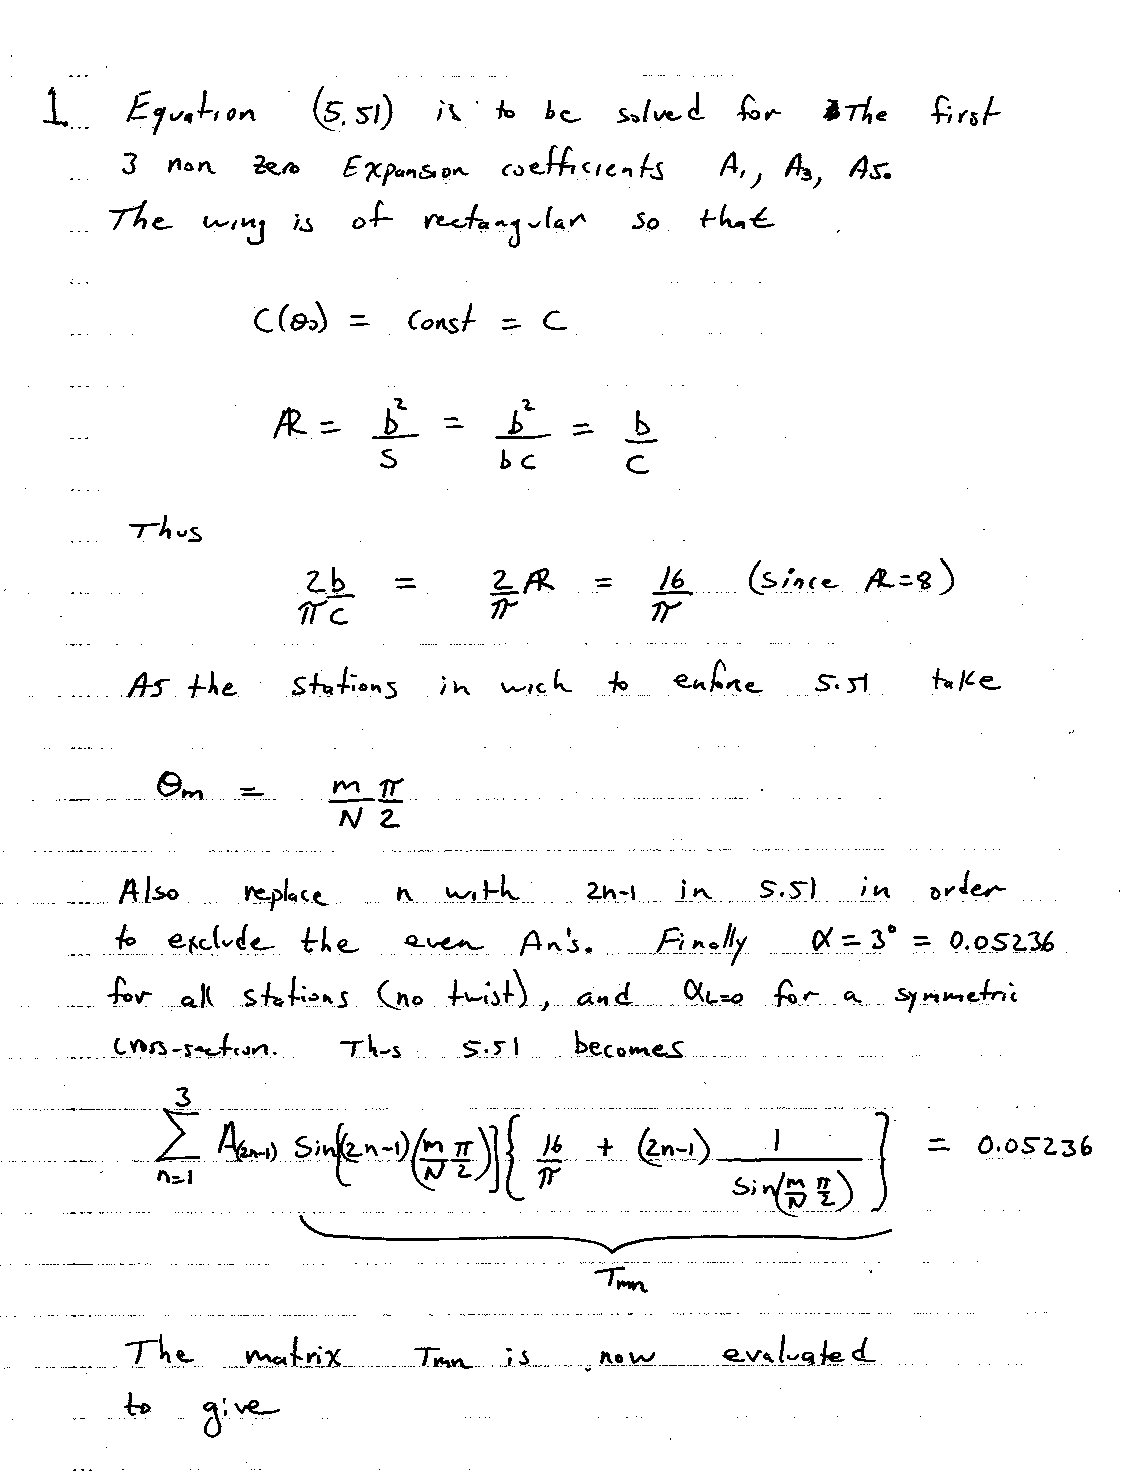 1. Equation (5.51) is to be solved for The first
3 non zero Expansion coefficients A₁, A₃, A₅.
The wing is of rectangular so that
C(θ₀) = Const = C
AR = b²/S = b²/bc = b/C
Thus
2b/πC = 2/π AR = 16/π (since AR=8)
As the stations in wich to enforce 5.51 take
θm = m/N π/2
Also replace n with 2n-1 in 5.51 in order
to exclude the even An's. Finally α = 3° = 0.05236
for all stations (no twist), and αL=0 for a symmetric
cross-section. Thus 5.51 becomes
∑ₙ₌₁³ A(2n-1) Sin[(2n-1)(m/N π/2)]{16/π + (2n-1) 1/Sin(m/N π/2)} = 0.05236
Tmn
The matrix Tmn is now evaluated
to give